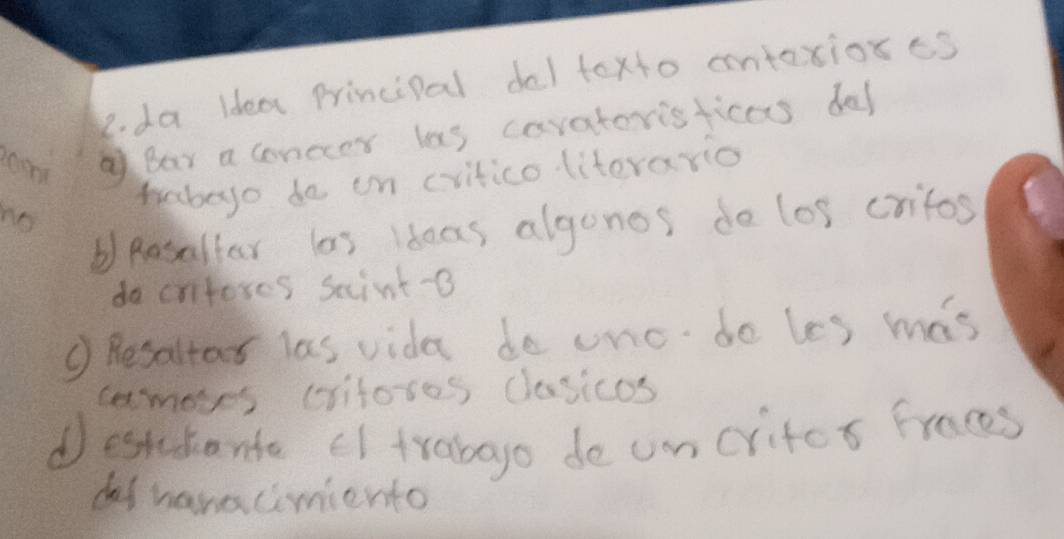 2. La Idea Principal del texto anterior es
a) Bar a conocer las caratoristicas del
trabayo de un critico literario
b) Resaltar las Ideas algunos de los critos
de critores Saint-B
c) Resaltar las vida de uno. de les más
camoses critores Clasicos
d) estudiante el trabajo de un critor fraces
del nanacimiento
no